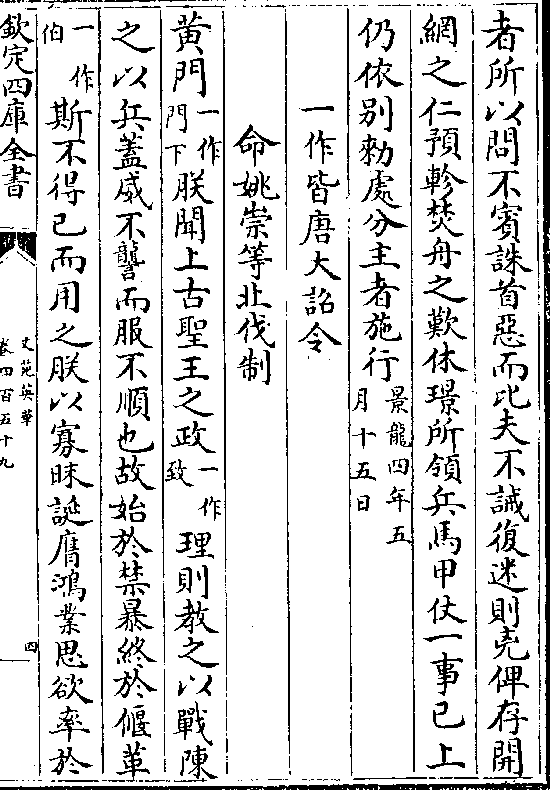 者所以問不賓誅首惡而北夫不誡復迷則堯俾存開
網之仁預軫焚舟之歎休璟所領兵馬甲仗一事已上
仍依别勑處分主者施行景龍四年五
月十五日
一作皆唐大詔令
命姚崇等北伐制
黄門一作
門下朕聞上古聖王之政一作
致理則教之以戰陳
之以兵蓋威不讋而服不順也故始於禁暴終於偃革
一作
伯斯不得已而用之朕以寡昧誕膺鴻業思欲率於
欽定四庫全書
文苑英華
卷四百五十九
四